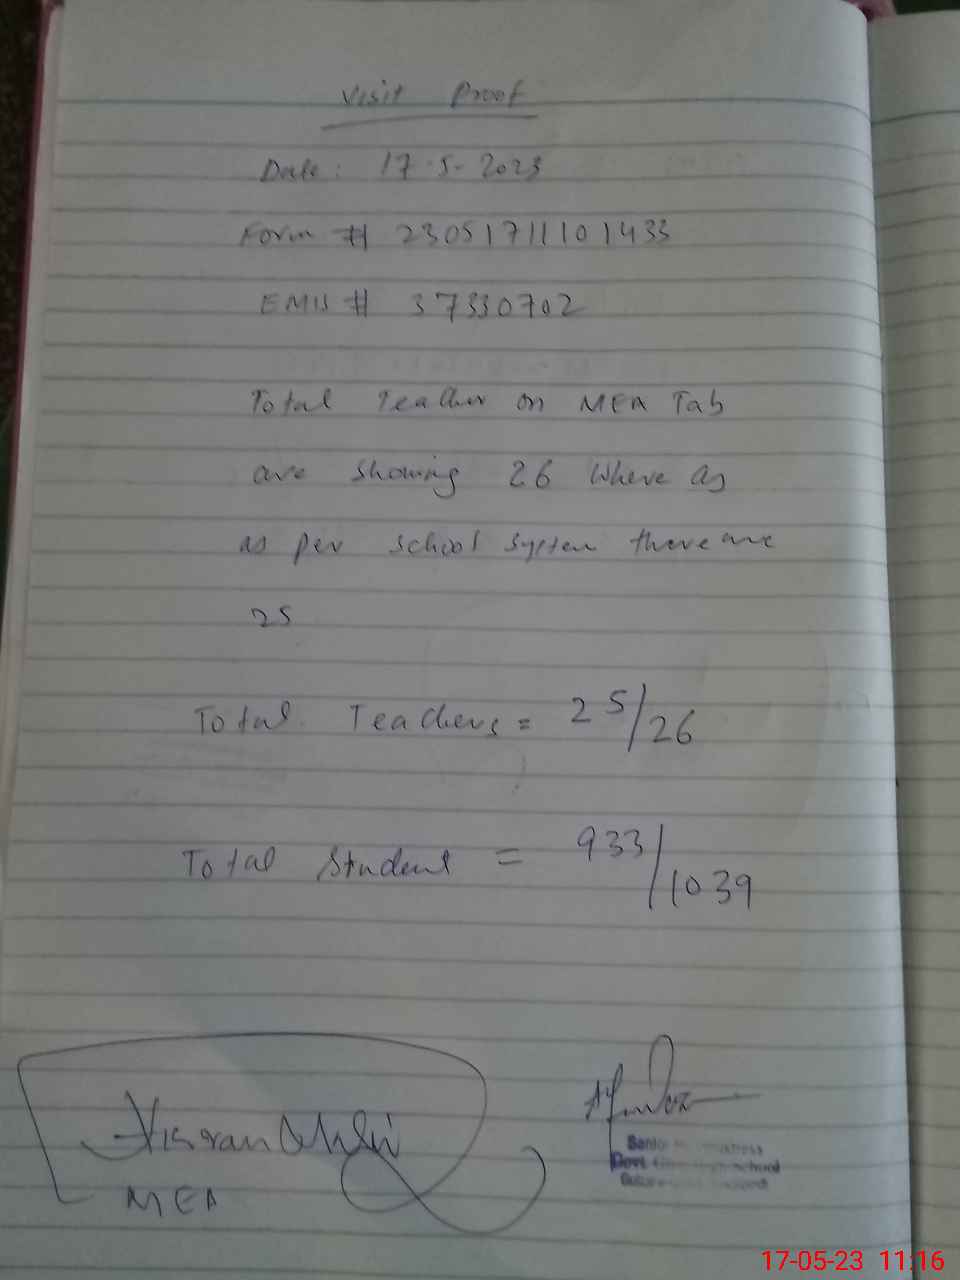 Visit Proof
Date: 17-5-2023
Form # 23051711101433
EMIS # 37330702
Total Teacher on MEA Tab
are showing 26 Where as
as per school system there are
25
Total Teachers = 25/26
Total Student = 933/1039
MEA
Senior
Govt. School
17-05-23 11:16